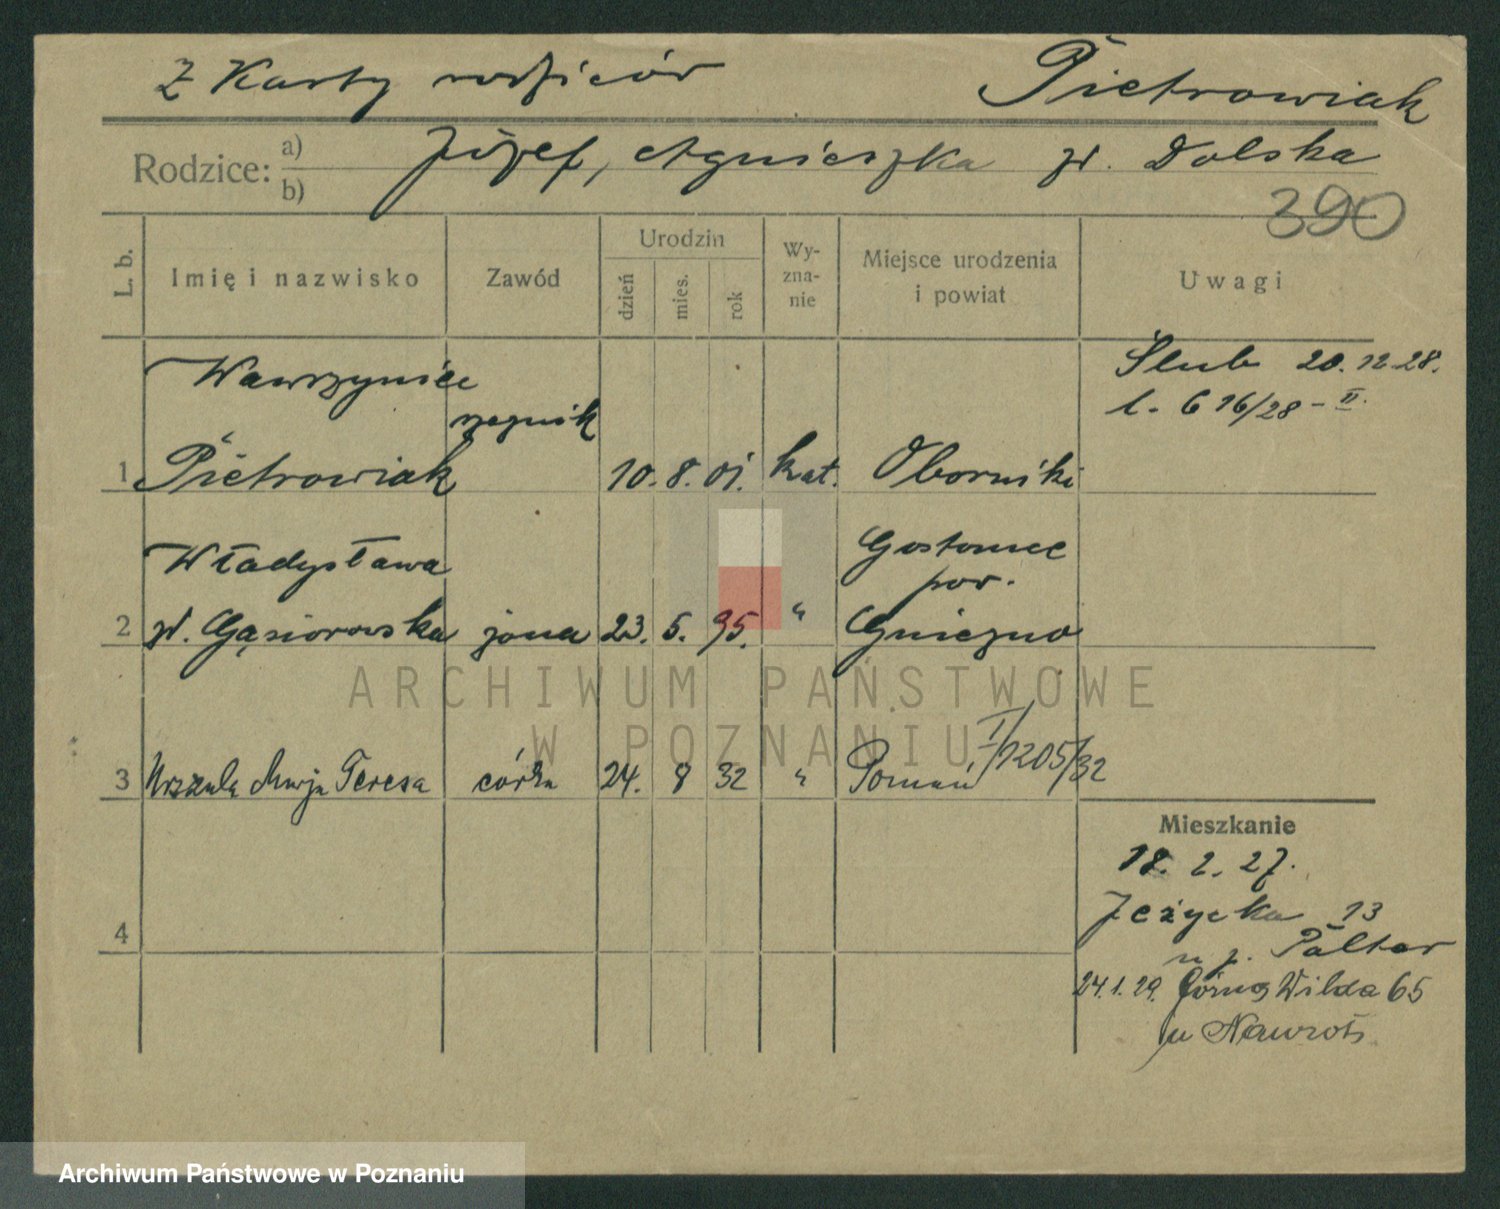 Z Karty rodziców Pietrowiak
Rodzice: a) Józef, Agnieszka zd. Dolska
b)
390
L. b.
Imię i nazwisko
Zawód
Urodzin
dzień
mies.
rok
Wy-
zna-
nie
Miejsce urodzenia
i powiat
Uwagi
Wawrzyniec
rzeźnik
1 Pietrowiak 10. 8. 01. kat. Oborniki
Ślub 20.12.28.
l. 616/28 - II.
Władysława
Gostomce
pow.
2 zd. Gąsiorowska żona 23. 5. 95. " Gniezno
3 Urszula Marja Teresa córka 24. 8 32 " Poznań I/1205/32
4
Mieszkanie
18. 2. 27.
Jeżycka 13
u p. Palter
24.1.29. Górna Wilda 65
u Nawrot
ARCHIWUM PAŃSTWOWE
W POZNANIU
Archiwum Państwowe w Poznaniu